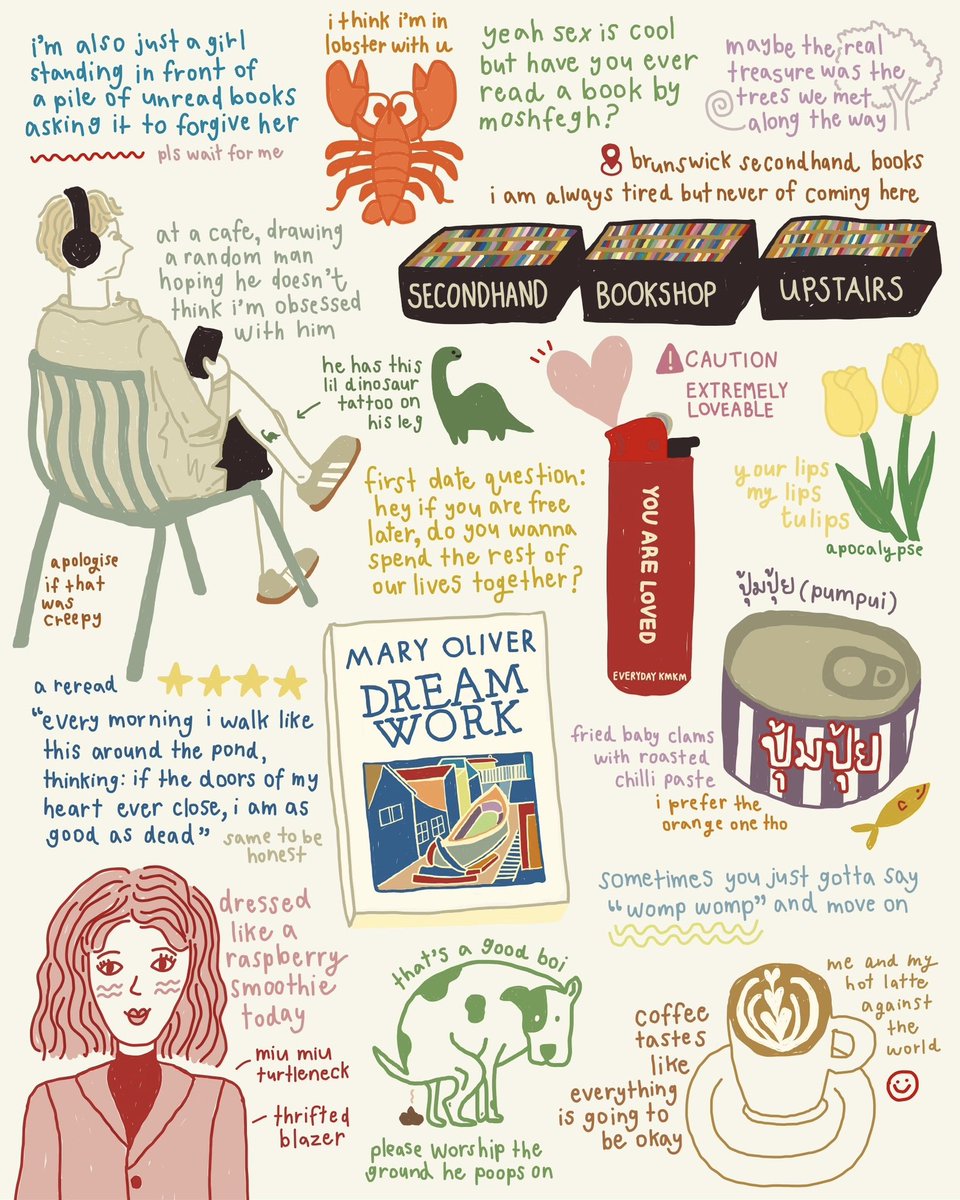 i'm also just a girl
standing in front of
a pile of unread books
asking it to forgive her
pls wait for me
i think i'm in
lobster with u
yeah sex is cool
but have you ever
read a book by
moshfegh?
maybe the real
treasure was the
trees we met
along the way
brunswick secondhand books
i am always tired but never of coming here
SECONDHAND
BOOKSHOP
UPSTAIRS
at a cafe, drawing
a random man
hoping he doesn't
think i'm obsessed
with him
he has this
lil dinosaur
tattoo on
his leg
apologise
if that
was
creepy
first date question:
hey if you are free
later, do you wanna
spend the rest of
our lives together?
CAUTION
EXTREMELY
LOVEABLE
YOU ARE LOVED
EVERYDAY KMKM
your lips
my lips
tulips
apocalypse
ปุ้มปุ้ย (pumpui)
ปุ้มปุ้ย
fried baby clams
with roasted
chilli paste
i prefer the
orange one tho
a reread
"every morning i walk like
this around the pond,
thinking: if the doors of my
heart ever close, i am as
good as dead"
same to be
honest
MARY OLIVER
DREAM
WORK
sometimes you just gotta say
"womp womp" and move on
dressed
like a
raspberry
smoothie
today
miu miu
turtleneck
thrifted
blazer
that's a good boi
please worship the
ground he poops on
coffee
tastes
like
everything
is going to
be okay
me and my
hot latte
against
the
world